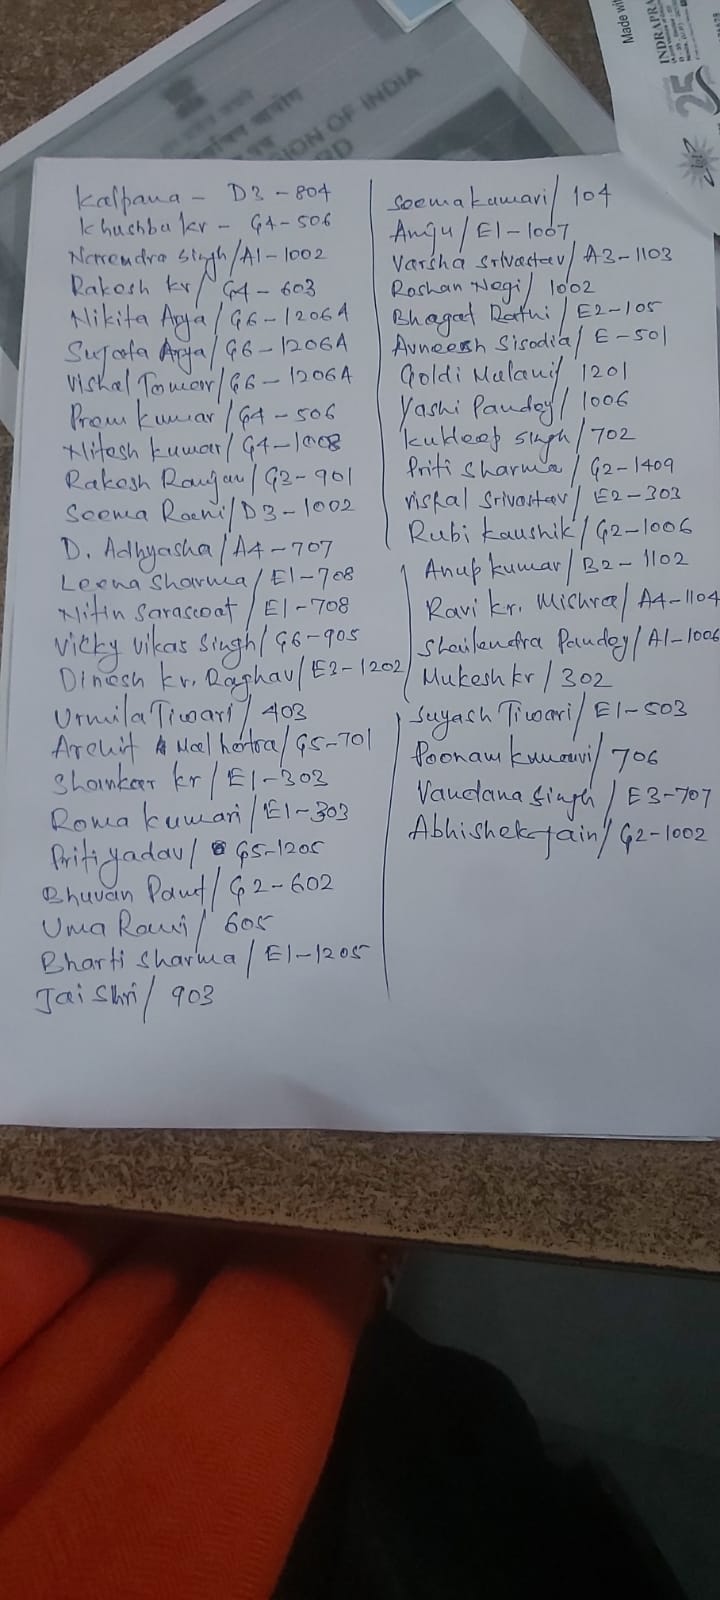 Made wit
INDRAPRA
25
ION OF INDIA
RD
Kalpana - D3 - 804
Khushbu kr - G4 - 506
Narendra Singh / A1 - 1002
Rakesh kr / G4 - 603
Nikita Arya / G6 - 1206A
Sujata Arya / G6 - 1206A
Vishal Tomar / G6 - 1206A
Prem kumar / G4 - 506
Nitesh kumar / G4 - 1008
Rakesh Ranjan / G3 - 901
Seema Rani / D3 - 1002
D. Adhyasha / A4 - 707
Leena Sharma / E1 - 708
Nitin Saraswat / E1 - 708
Vicky Vikas Singh / G6 - 905
Dinesh kr. Raghav / E3 - 1202
Urmila Tiwari / 403
Archit Malhotra / G5 - 701
Shankar kr / E1 - 303
Roma kumari / E1 - 303
Priti yadav / G5 - 1205
Bhuvan Pant / G2 - 602
Uma Rawi / 605
Bharti Sharma / E1 - 1205
Jai Shri / 903
Seema kumari / 104
Anju / E1 - 1007
Varsha Srivastav / A3 - 1103
Roshan Negi / 1002
Bhagat Rathi / E2 - 105
Avneesh Sisodia / E - 501
Goldi Melani / 1201
Yashi Pandey / 1006
Kuldeep Singh / 702
Priti Sharma / G2 - 1409
Vishal Srivastav / E2 - 303
Rubi Kaushik / G2 - 1006
Anup kumar / B2 - 1102
Ravi kr. Mishra / A4 - 1104
Shailendra Pandey / A1 - 1006
Mukesh kr / 302
Suyash Tiwari / E1 - 503
Poonam kumari / 706
Vandana Singh / E3 - 707
Abhishek Jain / G2 - 1002